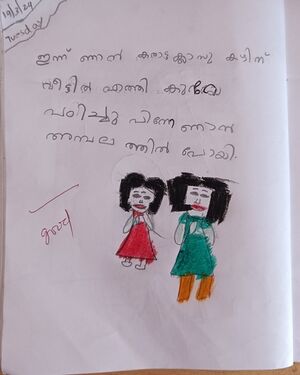 19/3/24
Tuesday
ഇന്ന് ഞാൻ കരാട്ടക്ലാസു കഴിന്
വീട്ടിൽ എത്തി കുറച്ചു
പഠിച്ചു പിന്നേ ഞാൻ
അമ്പല ത്തിൽ പോയി.